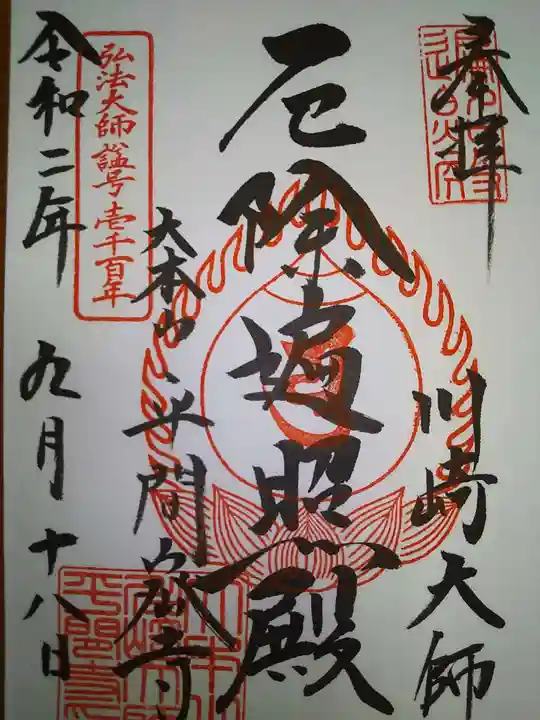 奉拝
川崎大師
厄除遍照殿
大本山 平間寺
弘法大師諡号壱千百年
令和二年 九月十八日